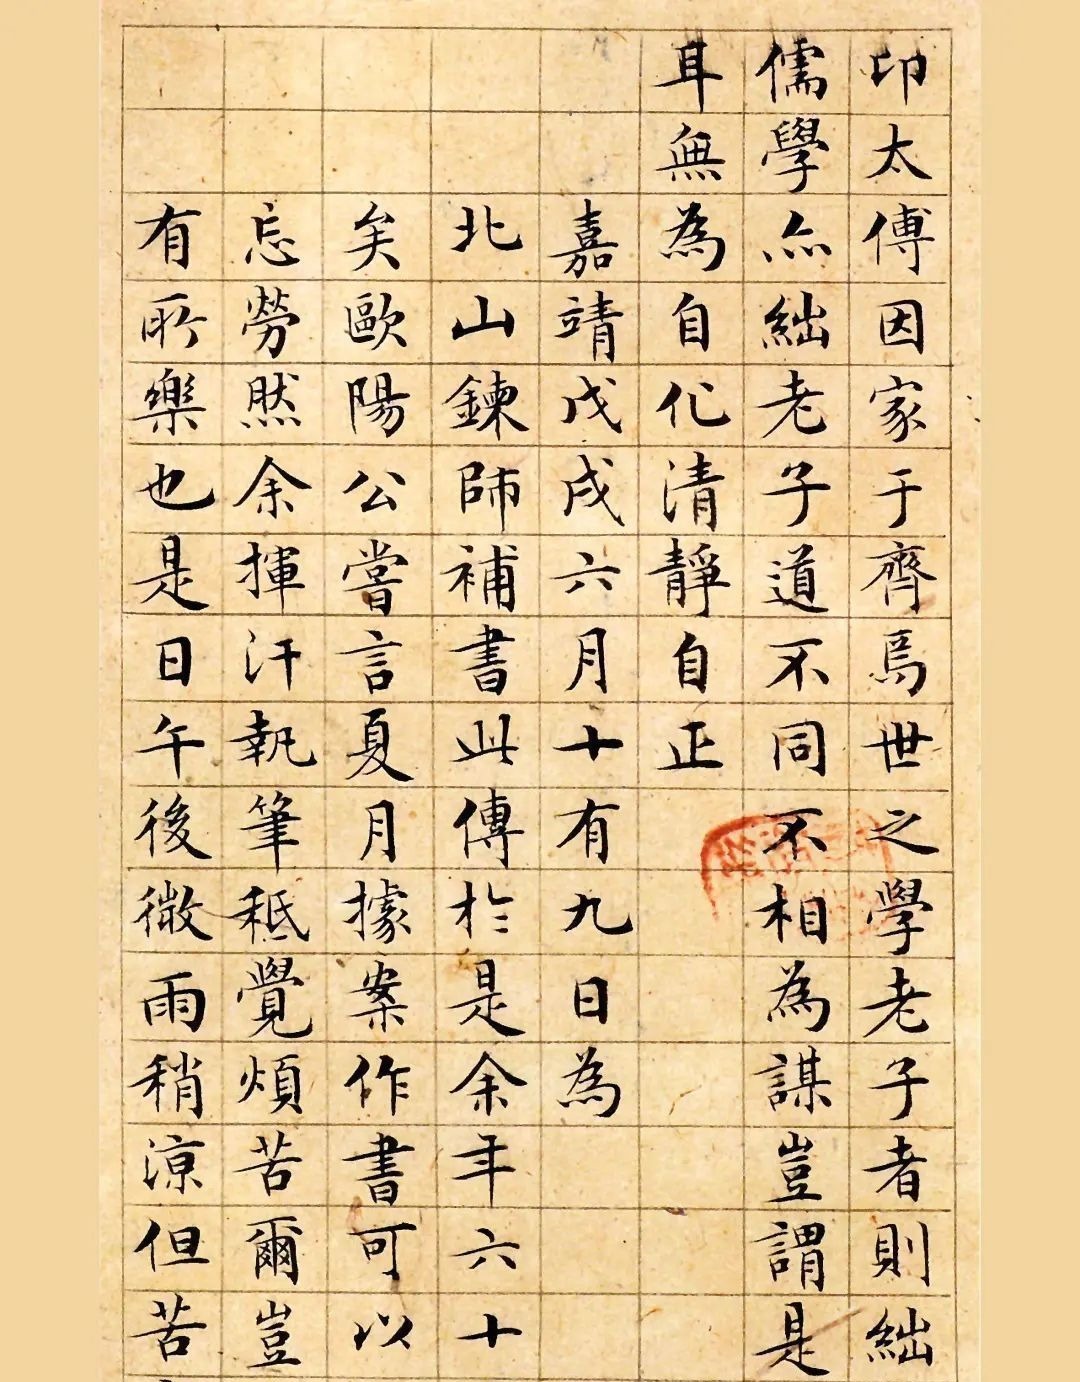 卬太傅因家于齊焉世之學老子者則絀
儒學亦絀老子道不同不相為謀豈謂是
耳無為自化清靜自正
嘉靖戊戌六月十有九日為
北山鍊師補書此傳於是余年六十
矣歐陽公嘗言夏月據案作書可以
忘勞然余揮汗執筆秖覺煩苦爾豈
有所樂也是日午後微雨稍涼但苦